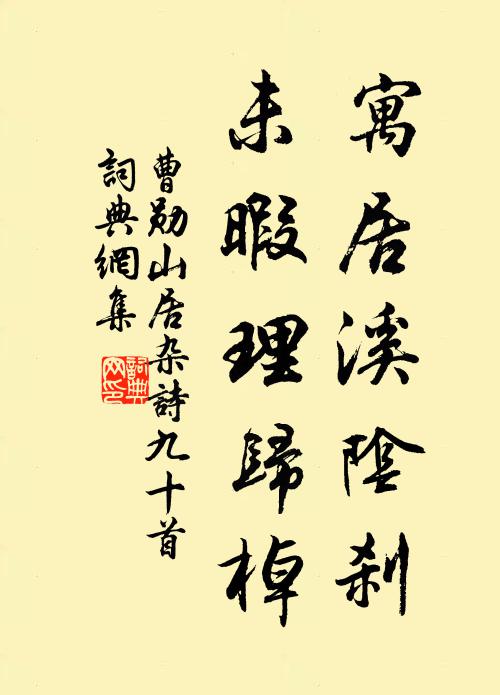 寓居溪陰刹
未暇理歸棹
曹勛山居杂詩九十首
詞典網集
詞典網印